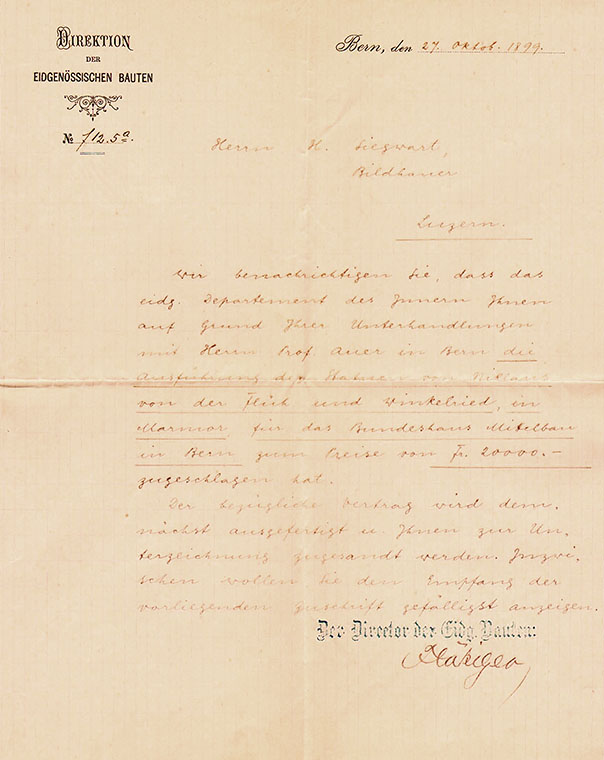 DIREKTION
DER
EIDGENÖSSISCHEN BAUTEN
№ 112.5a.
Bern, den 27. Oktob. 1899.
Herrn H. Siegwart,
Bildhauer
Luzern.
Wir benachrichtigen Sie, dass das
eidg. Departement des Innern Ihnen
auf Grund Ihrer Unterhandlungen
mit Herrn Prof. Auer in Bern die
Ausführung der Statuen von Niklaus
von der Flüh und Winkelried, in
Marmor, für das Bundeshaus Mittelbau
in Bern zum Preise von Fr. 20000.–
zugeschlagen hat.
Der bezügliche Vertrag wird dem-
nächst ausgefertigt u. Ihnen zur Un-
terzeichnung zugesandt werden. Inzwi-
schen wollen Sie den Empfang der
vorliegenden Zuschrift gefälligst anzeigen.
Der Director der Eidg. Bauten: